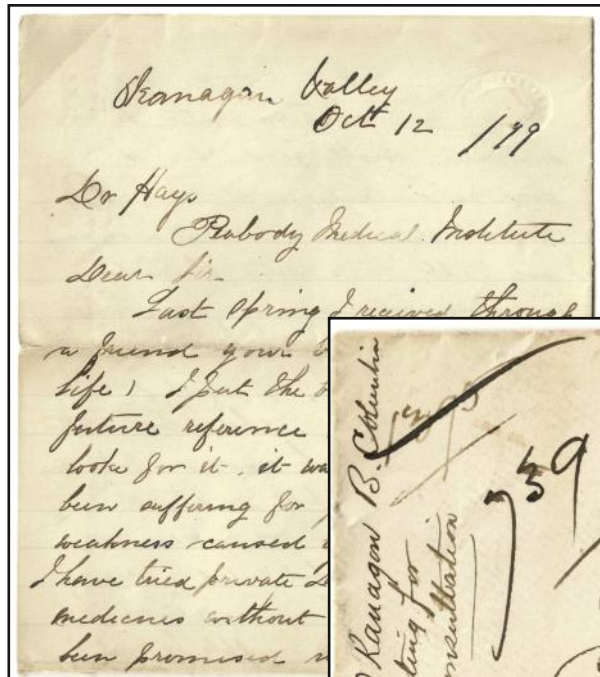 Okanagan Valley
Oct 12 /79
Dr Hays
Peabody Medical Institute
Dear Sir
Last Spring I received through
a friend your
life) I put the
future reference
looke for it, it
been suffering for
weakness caused
I have tried private
medicenes without
been promised
Kanagon B. Columbia
for
Consultation
739